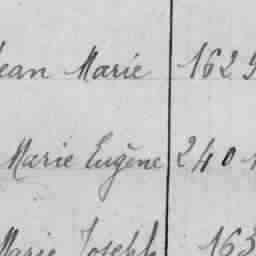 Jean Marie 162
Marie Eugène 240
Marie Joseph 163